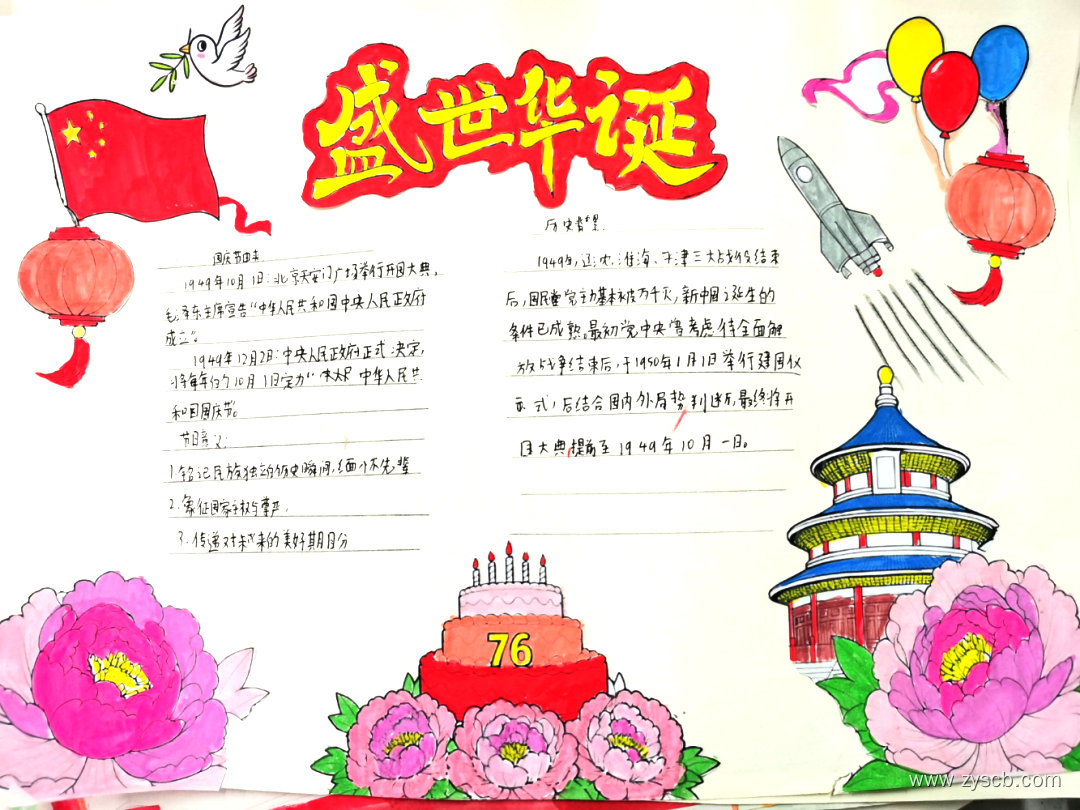 盛世华诞
国庆节由来
1949年10月1日:北京天安门广场举行开国大典,
毛泽东主席宣告"中华人民共和国中央人民政府
成立"。
1949年12月2日:中央人民政府正式决定,
将每年的10月1日定为" 中华人民共
和国国庆节。
节日意义:
1.铭记民族独立的历史瞬间,缅怀先辈
2.象征国家主权与尊严.
3.传递对未来的美好期盼
历史背景.
1949年,辽沈、淮海、平津三大战役结束
后,国民党主力基本被歼灭,新中国诞生的
条件已成熟。最初党中央常考虑待全面解
放战争结束后,于1950年1月1日举行建国仪
式,后结合国内外局势判断,最终将开
国大典提前至1949年10月一日。
76
www.zyscb.com